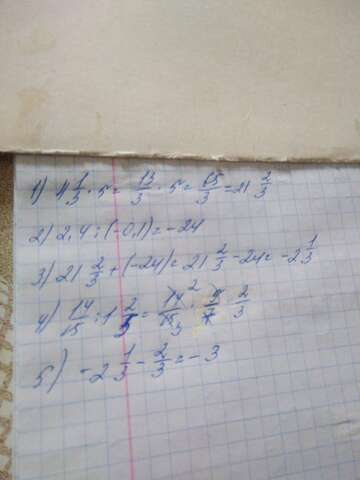 1) 4 1/3 · 5 = 13/3 · 5 = 65/3 = 21 2/3
2) 2,4 : (-0,1) = -24
3) 21 2/3 + (-24) = 21 2/3 - 24 = -2 1/3
4) 14/15 : 1 2/5 = 14/15 3 2 · 5/7 2/3
5) -2 1/3 - 2/3 = -3